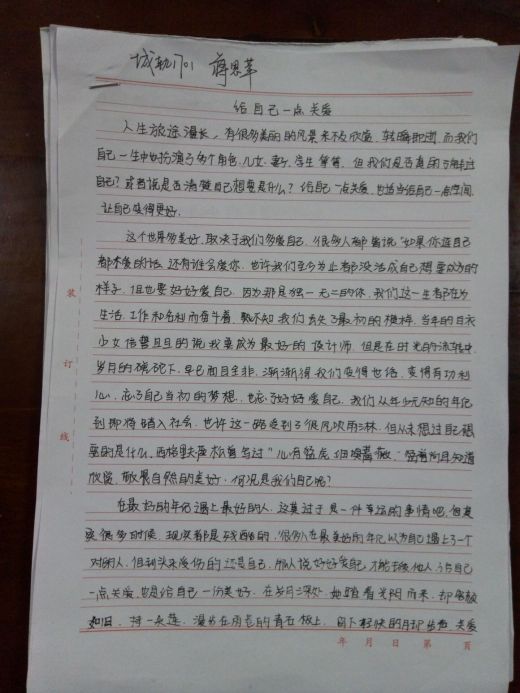 城轨1701 蒋思苹
给自己一点关爱
人生旅途漫长，有很多美丽的风景来不及欣赏，转瞬即逝，而我们
自己一生中如扮演了多个角色，儿女、妻子、学生等等，但我们是否真的了解过
自己？或者说是否清楚自己想要是什么？给自己一点关爱，也适当给自己一点空间，
让自己变得更好。
这个世界多美好，取决于我们多爱自己，很多人都曾说"如果你连自己
都不爱的话，还有谁会爱你，也许我们至今为止都没活成自己想要成为的
样子，但也要好好爱自己，因为那是独一无二的你，我们这一生都在为
生活、工作和名利而奋斗着，孰不知我们丢失了最初的模样，当年的白衣
少女信誓旦旦的说我要成为最好的设计师，但是在时光的流转中，
岁月的磋砣下，早已面目全非，渐渐得我们变得世俗，变得有功利
心，忘了自己当初的梦想，也忘了好好爱自己，我们从年少无知的年纪
到即将踏入社会，也许这一路受到了很风吹雨淋，但从未想过自己想
要的是什么，西格里夫萨松曾写过"心有猛虎，细嗅蔷薇，"尚且知道
欣赏、敬畏自然的美好，何况是我们自己呢？
在最好的年纪遇上最好的人，这莫过于是一件幸运的事情吧，但其
实很多时候，现实都是残酷的，很多人在最美好的年纪以为自己遇上了一个
对的人，但到头来受伤的还是自己，别人说好好爱自己，才能去爱他人，给自己
一点关爱，也是给自己一份美好，在岁月深处，她踏着光阴而来，却容貌
如旧，持一朵莲，漫步在雨巷的青石板上，留下轻快的，关爱
年 月 日 第 页
装
订
线